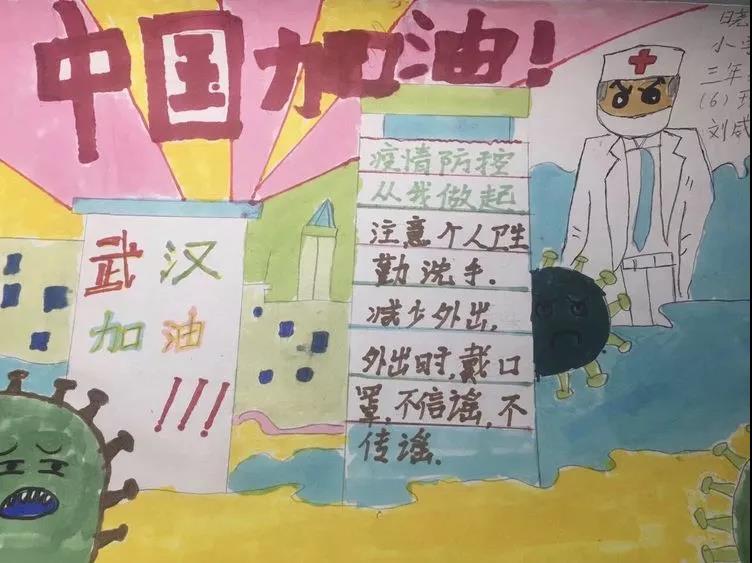 中国加油!
晓
小
三年
(6)
刘威
武汉
加油
!!!
疫情防控
从我做起
注意个人卫生
勤洗手.
减少外出,
外出时,戴口
罩,不信谣,不
传谣.